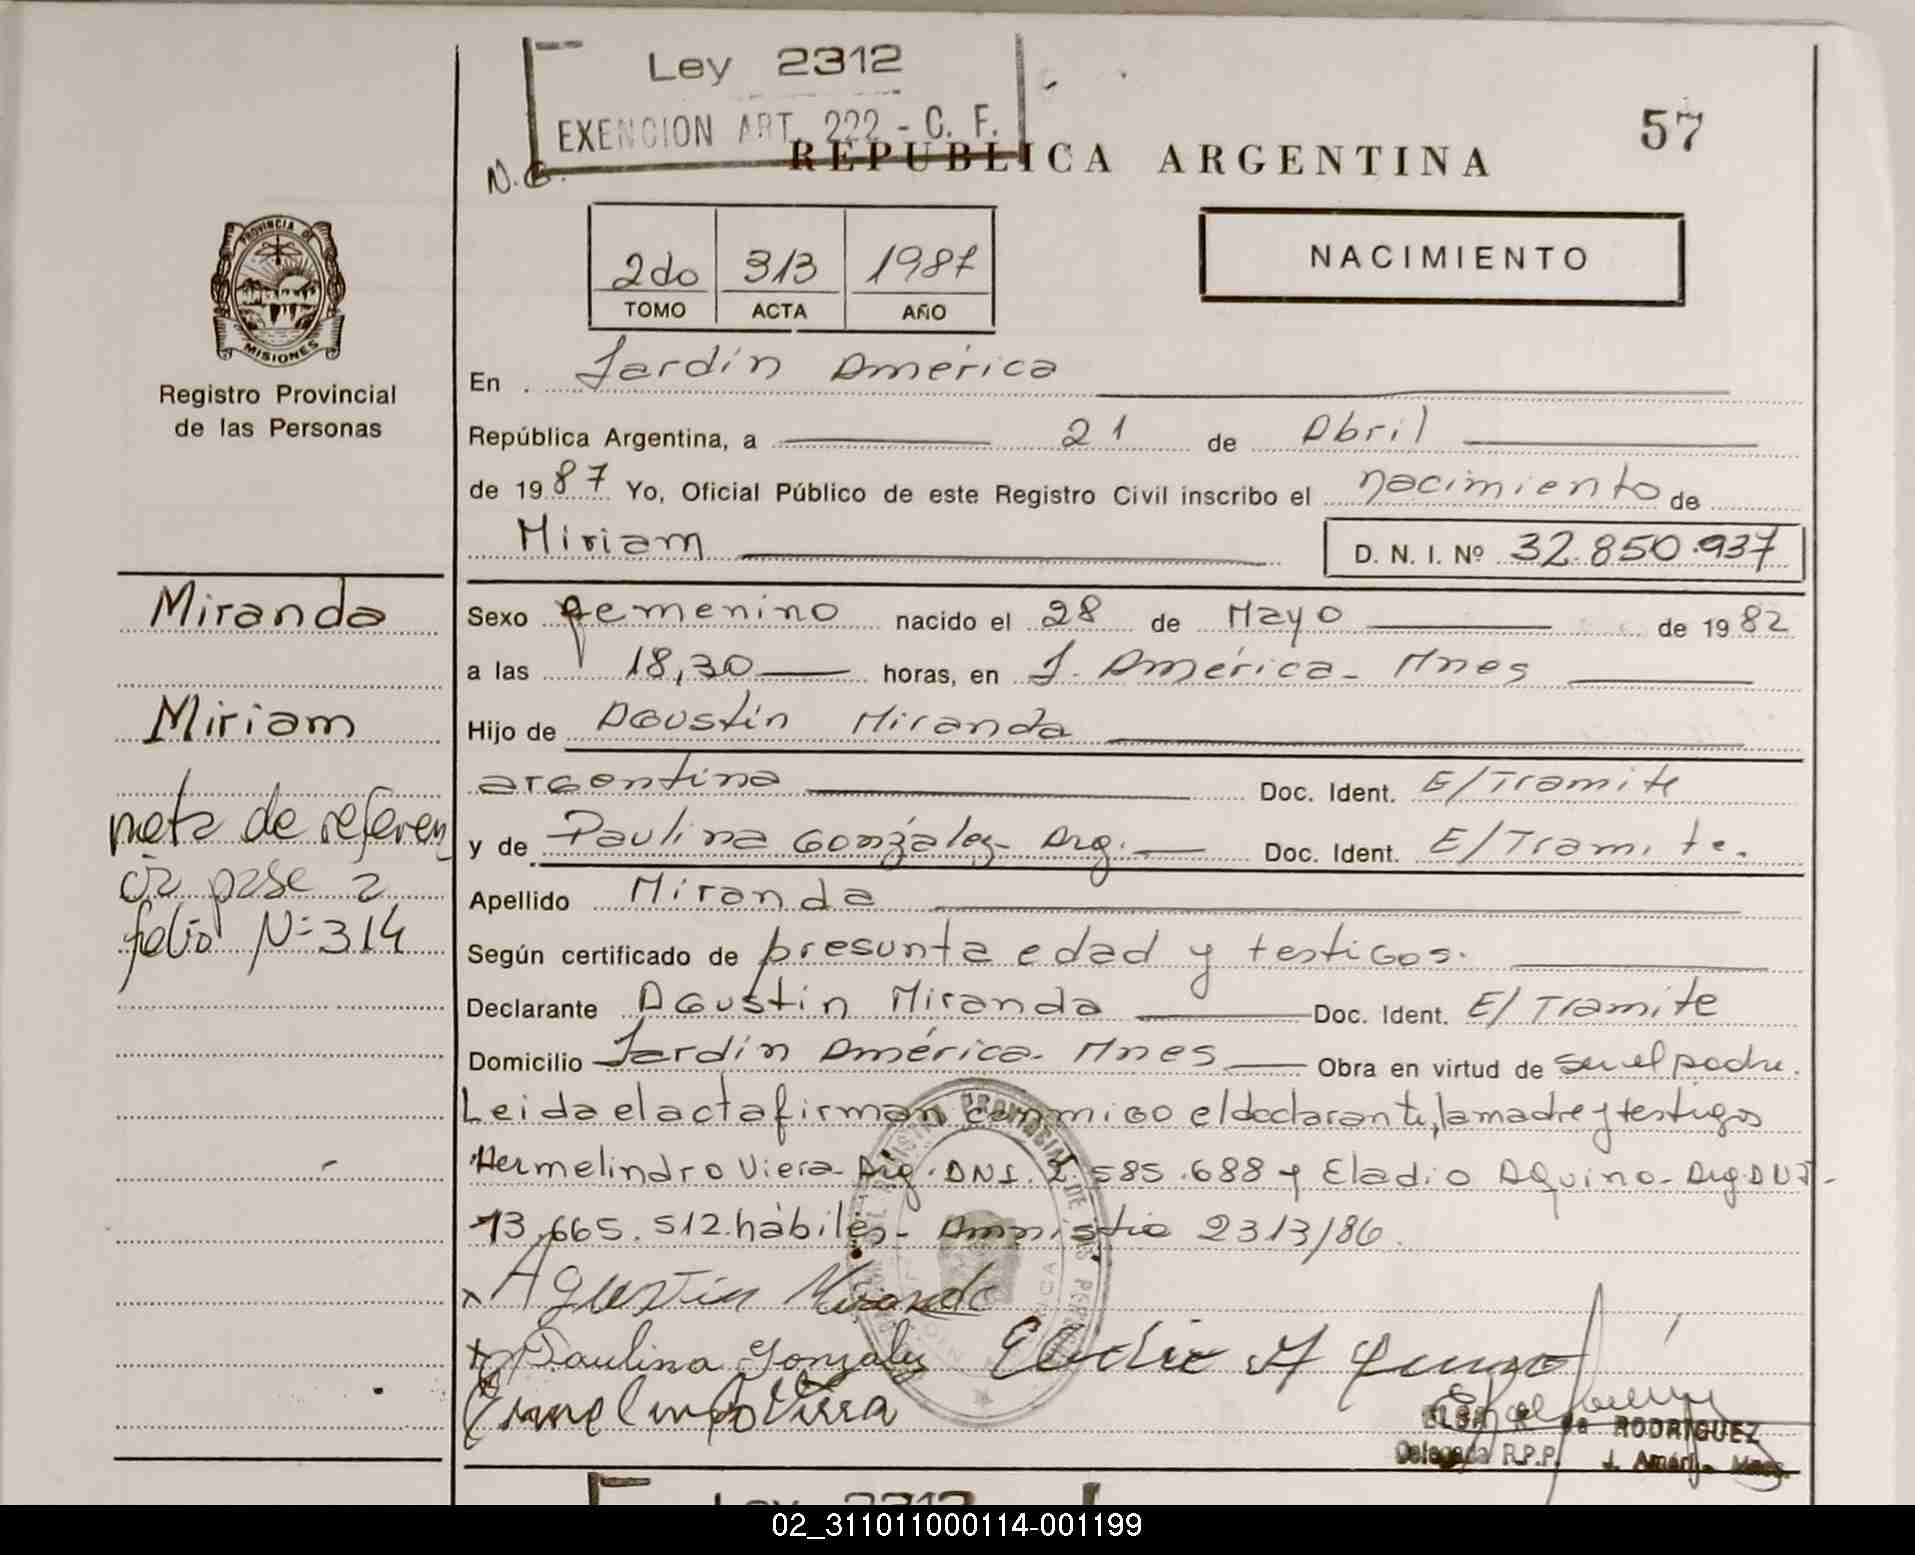 Ley 2312
EXENCION ART. 222 - C. F.
N.G.
REPUBLICA ARGENTINA
57
PROVINCIA DE
MISIONES
Registro Provincial
de las Personas
2do 313 1987
TOMO ACTA AÑO
NACIMIENTO
En Jardín América
República Argentina, a 21 de Abril
de 1987 Yo, Oficial Público de este Registro Civil inscribo el nacimiento de
Miriam D. N. I. Nº 32.850.937
Miranda
Miriam
nota de referen
cia pase a
folio Nº 314
Sexo femenino nacido el 28 de Mayo de 1982
a las 18,30 horas, en J. América - Mnes
Hijo de Agustín Miranda
argentina Doc. Ident. E/Tramite
y de Paulina González - Arg. Doc. Ident. E/Tramite.
Apellido Miranda
Según certificado de presunta edad y testigos.
Declarante Agustín Miranda Doc. Ident. E/Tramite
Domicilio Jardín América - Mnes Obra en virtud de ser el padre.
Leida el acta firman conmigo el declarante, la madre y testigos
Hermelindro Viera - Arg. DNI. 2.585.688 y Eladio Aquino - Arg DNI -
13.665.512. hábiles - Amnistia 2313/86.
x Agustin Miranda
x Paulina Gonzalez Eladio Aquino
Ermelindo Viera
ELSA de RODRIGUEZ
Delegada R.P.P. J. Amér. - Mnes.
Ley 2312
02_311011000114-001199